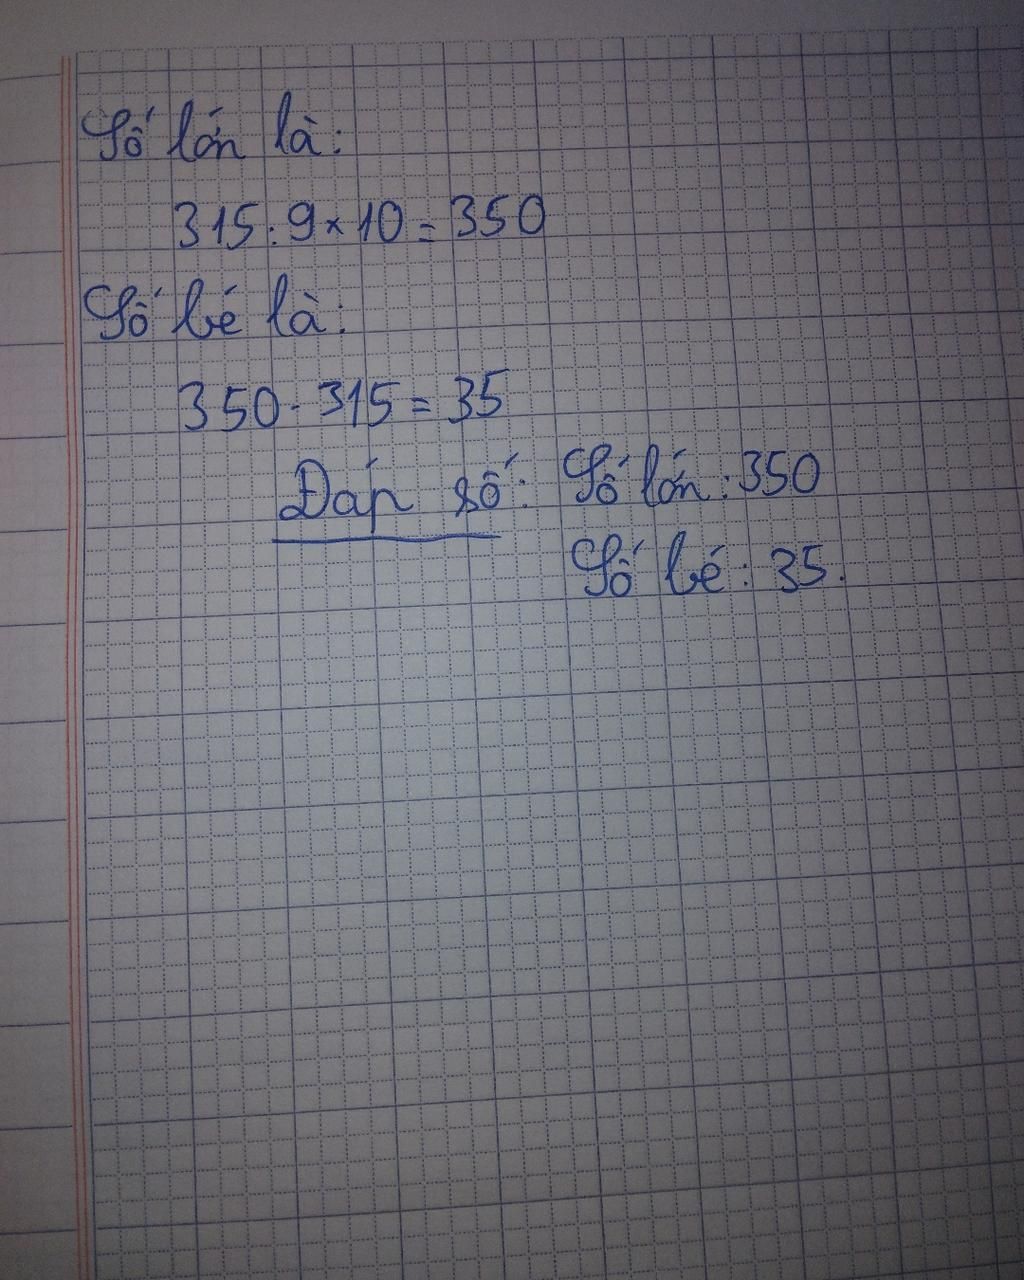 Số lớn là:
315 : 9 × 10 = 350
Số bé là:
350 - 315 = 35
Đáp số: Số lớn : 350
Số bé : 35.